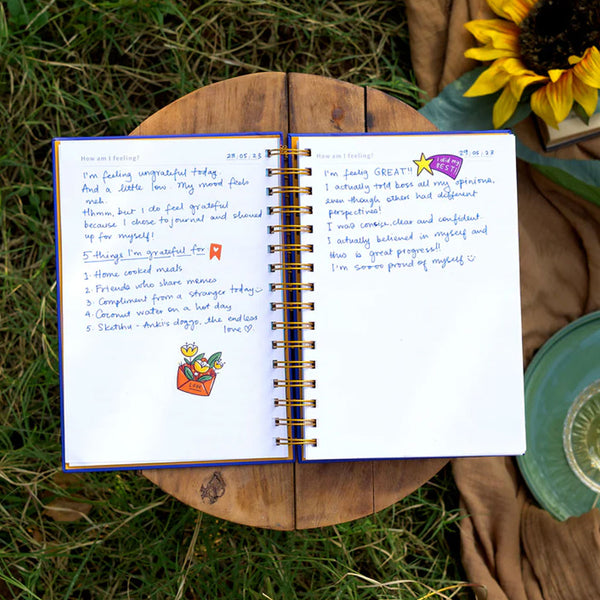 How am I feeling?
28.05.23
I'm feeling ungrateful today.
And a little low. My mood feels
meh.
Hhmm, but I do feel grateful
because I chose to journal and showed
up for myself!
5 things I'm grateful for
1. Home cooked meals
2. Friends who share memes
3. Compliment from a stranger today
4. Coconut water on a hot day
5. Sketshu - Anki's doggo, the endless
love ♡.
LOVE
How am I feeling?
29.05.23
I'm feeling GREAT!!
I did my
BEST!
I actually told boss all my opinions,
even though others had different
perspectives!
I was concise, clear and confident.
I actually believed in myself and
this is great progress!!
I'm soooo proud of myself